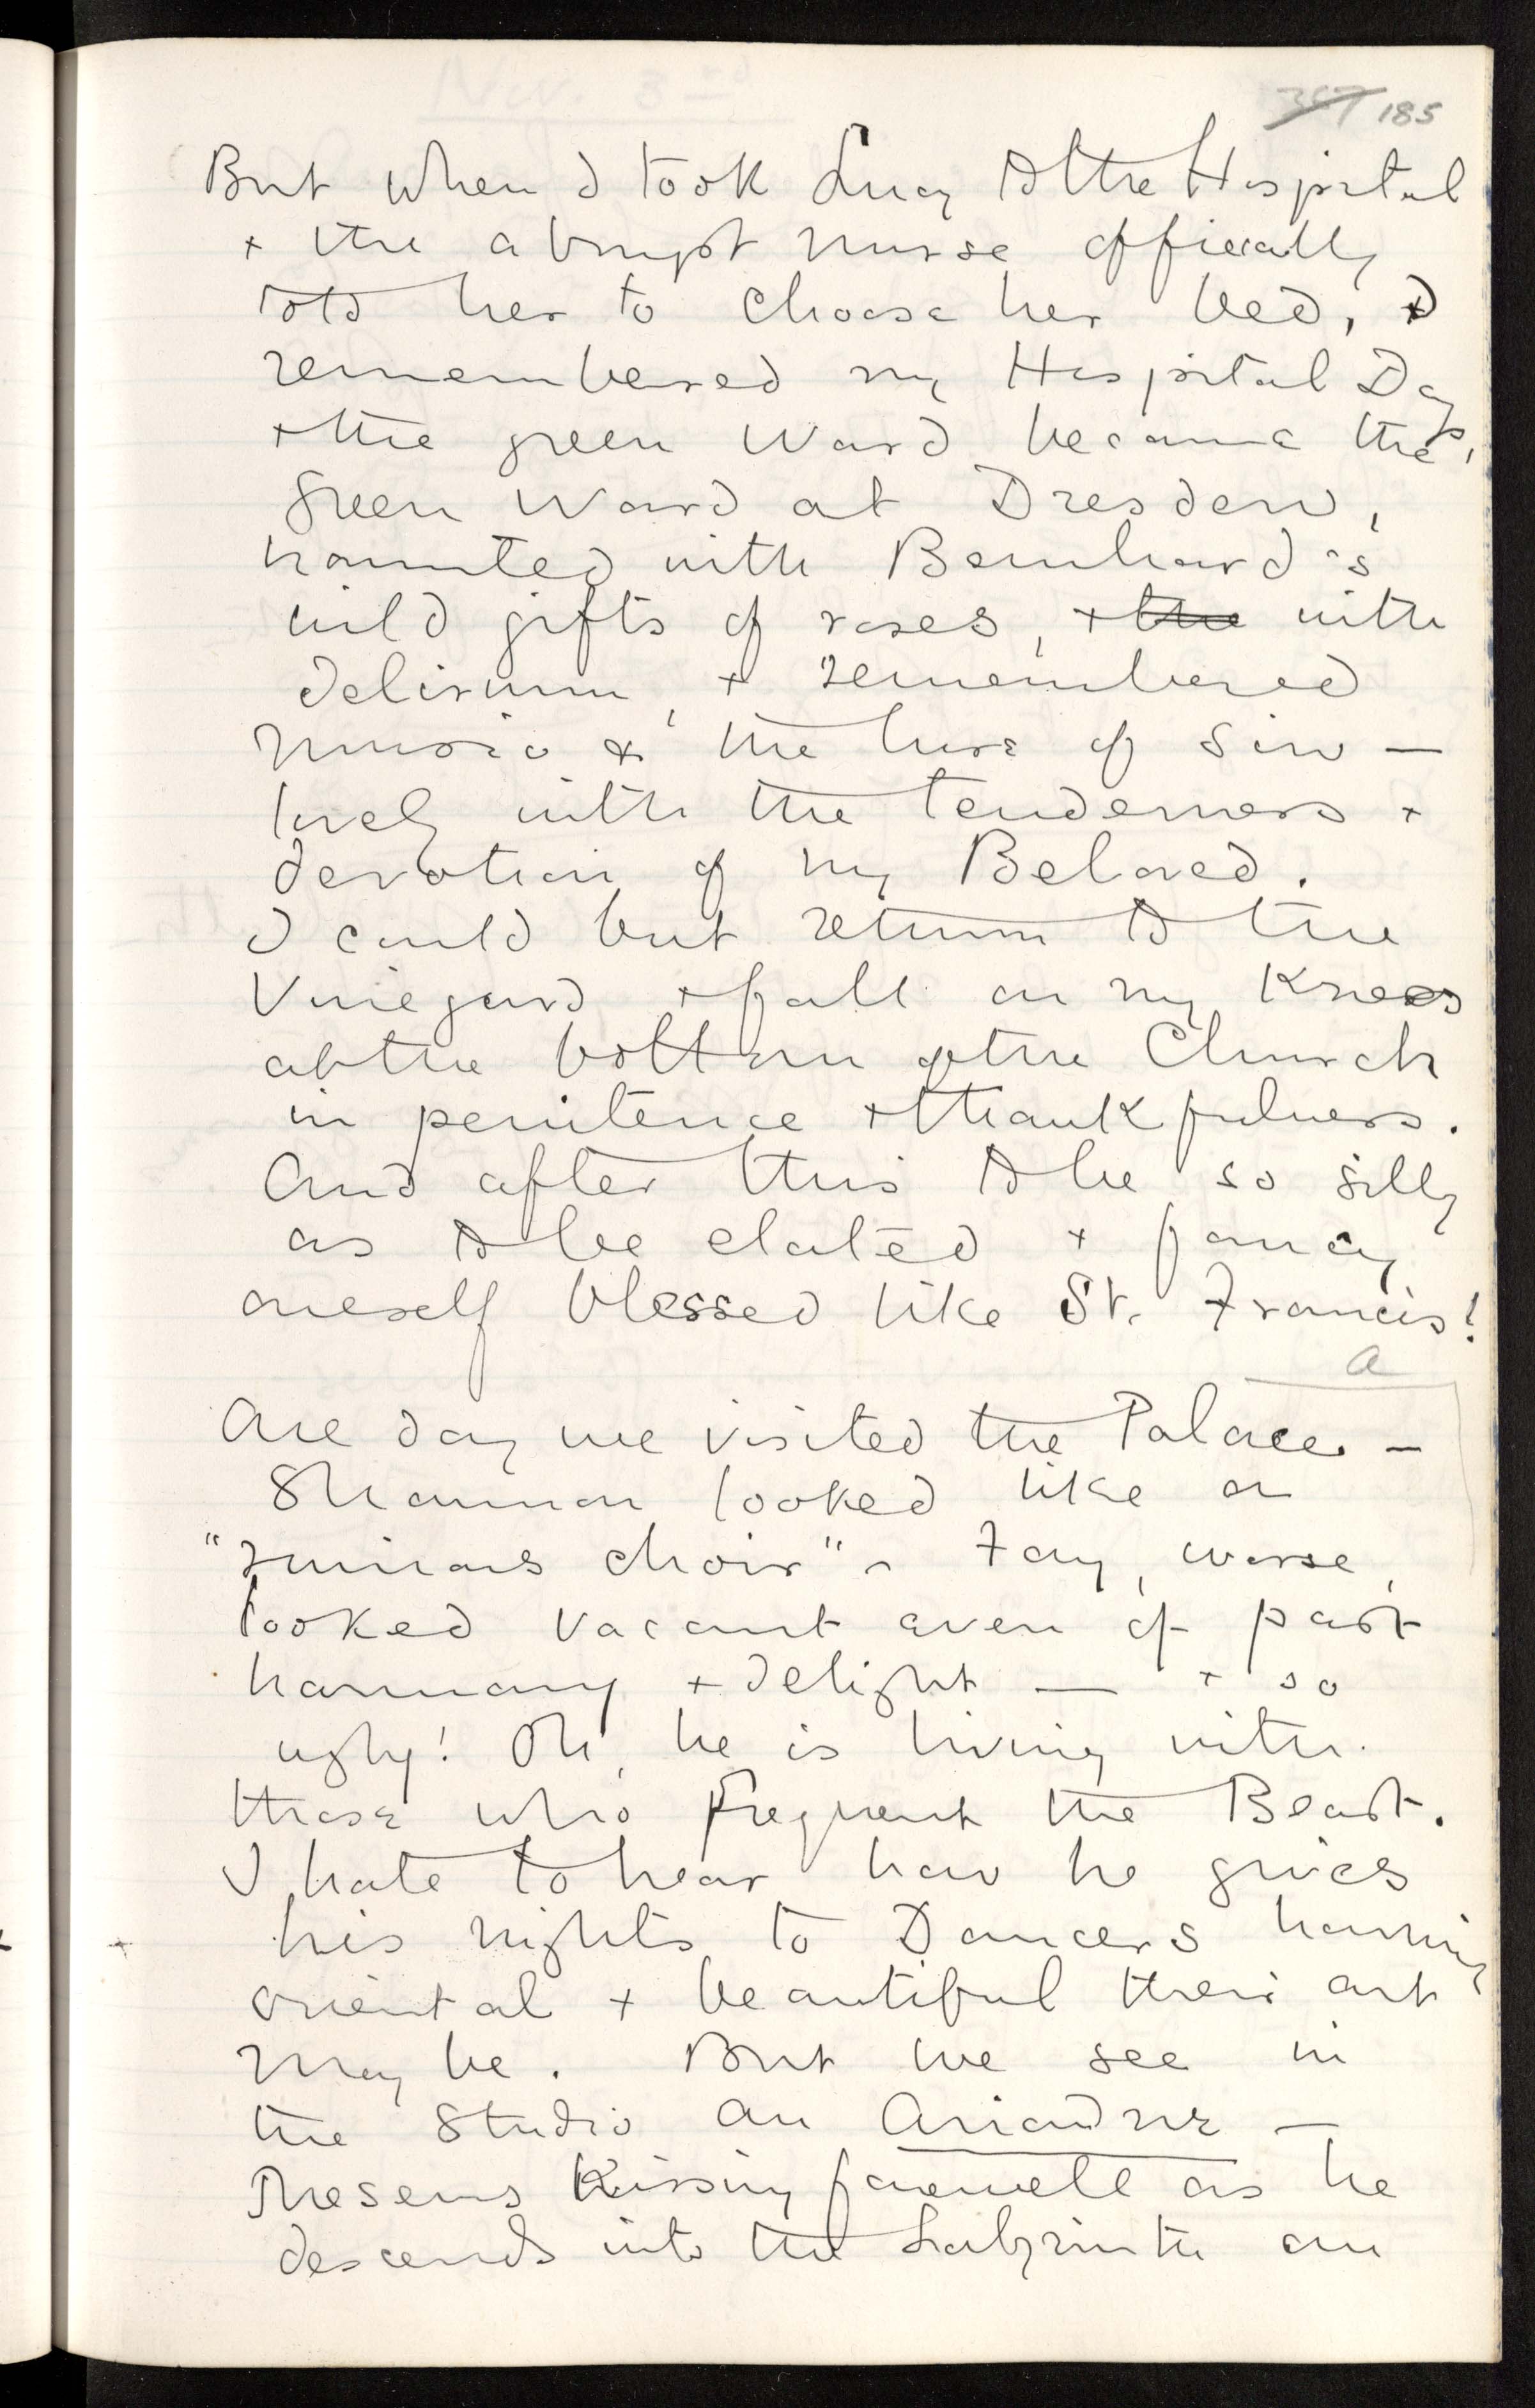 ~~367~~ 185
But when I took Lucy to the Hospital
+ the abrupt nurse officially
told her to choose her bed, I
remembered my Hospital Days,
+ the green ward became the
green ward at Dresden,
haunted with Bernhard's
wild gifts of roses, + ~~the~~ with
delirium, + remembered
music & the lure of sin —
lovely with the tenderness +
devotion of my Beloved.
I could but return to the
Vineyard + fall on my knees
at the bottom of the Church
in penitence + thankfulness.
And after this to be so silly
as to be elated + fancy
oneself blessed like St. Francis!
a
One day we visited the Palace —
Shannon looked like a
"ruinous choir" - Fay, worse,
looked vacant even of past
harmony + delight — + so
ugly! Oh, he is living with
those who frequent the Beast.
I hate to hear how he gives
his nights to Dancers however
oriental + beautiful their art
may be. But we see in
the Studio an Ariadne —
Theseus kissing farewell as he
descends into the Labyrinth an